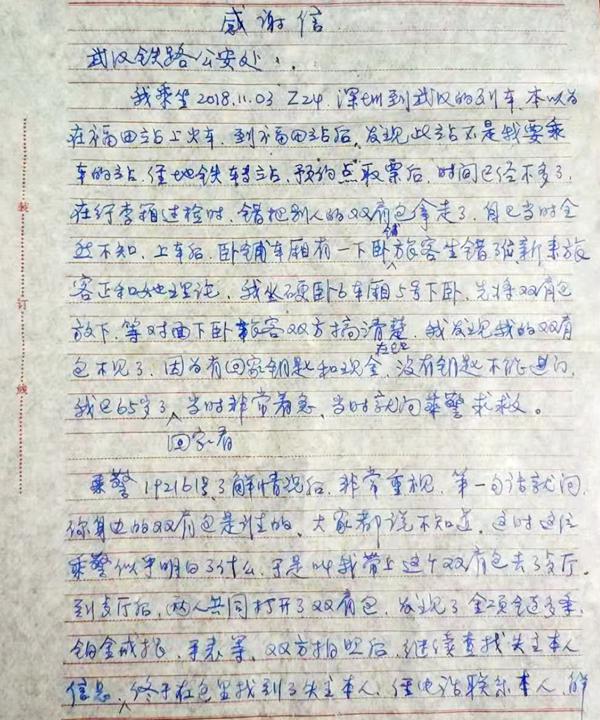 感谢信
武汉铁路公安处：
我乘坐2018.11.03 Z24 深圳到武汉的列车，本以为
在福田站上火车，到福田站后，发现此站不是我要乘
车的站，经地铁转站，预约点取票后，时间已经不多了，
在行李箱过检时，错把别人的双肩包拿走了，自己当时全
然不知，上车后，卧铺车厢有一下卧铺旅客坐错了位，新来旅
客正和她理论，我坐硬卧6车厢5号下卧，先将双肩包
放下，等对面下卧旅客双方搞清楚，我发现我的双肩
包不见了，因为有回家钥匙和现金在包，没有钥匙不能进门，
我已65岁了，当时非常着急，当时就向乘警求救。
回家着
乘警1921618了解情况后，非常重视，第一句话就问，
你身边的双肩包是谁的，大家都说不知道，这时这位
乘警似乎明白了什么，于是叫我带上这个双肩包去了餐厅，
到餐厅后，两人共同打开了双肩包，发现了金项链多条，
铂金戒指，手表等，双方拍照后，继续查找失主本人
信息，终于在包里找到了失主本人，经电话联系本人，解
装
订
线